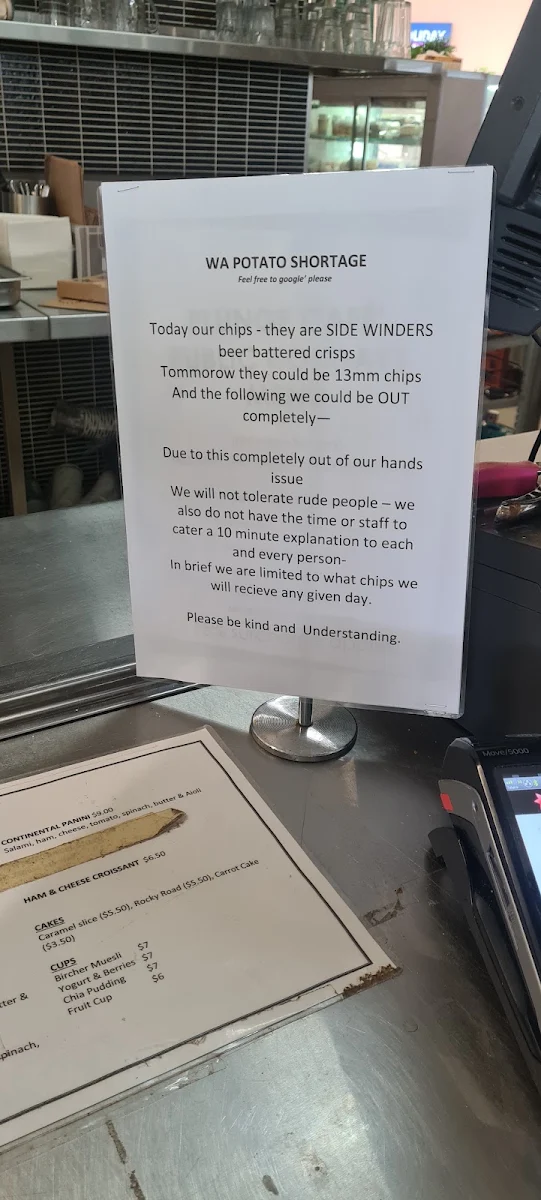 WA POTATO SHORTAGE
Feel free to google' please
Today our chips - they are SIDE WINDERS
beer battered crisps
Tommorow they could be 13mm chips
And the following we could be OUT
completely—
Due to this completely out of our hands
issue
We will not tolerate rude people – we
also do not have the time or staff to
cater a 10 minute explanation to each
and every person-
In brief we are limited to what chips we
will recieve any given day.
Please be kind and Understanding.
Move/5000
CONTINENTAL PANINI $9.00
Salami, ham, cheese, tomato, spinach, butter & Aioli
HAM & CHEESE CROISSANT $6.50
CAKES
Caramel slice ($5.50), Rocky Road ($5.50), Carrot Cake
($3.50)
CUPS
Bircher Muesli $7
Yogurt & Berries $7
Chia Pudding $7
Fruit Cup $6
&